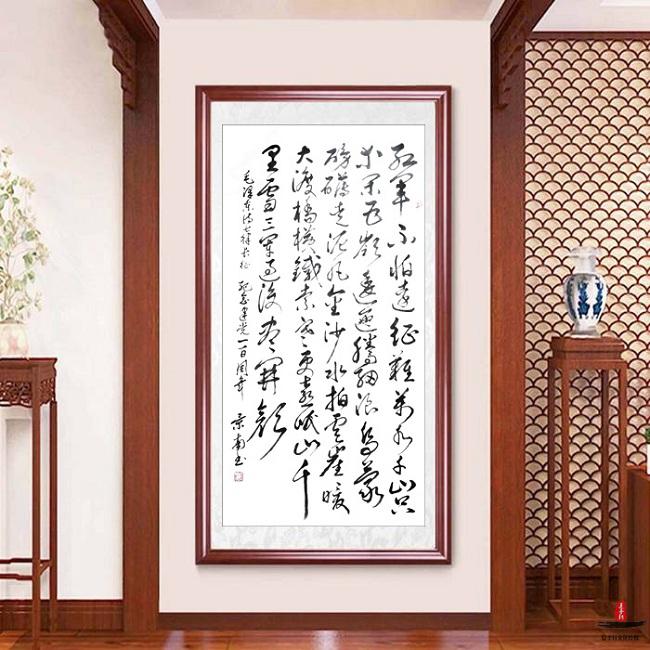 红军不怕远征难万水千山只
等闲五岭逶迤腾细浪乌蒙
磅礴走泥丸金沙水拍云崖暖
大渡桥横铁索寒更喜岷山千
里雪三军过后尽开颜
毛泽东诗七律长征 纪念建党一百周年 景南书